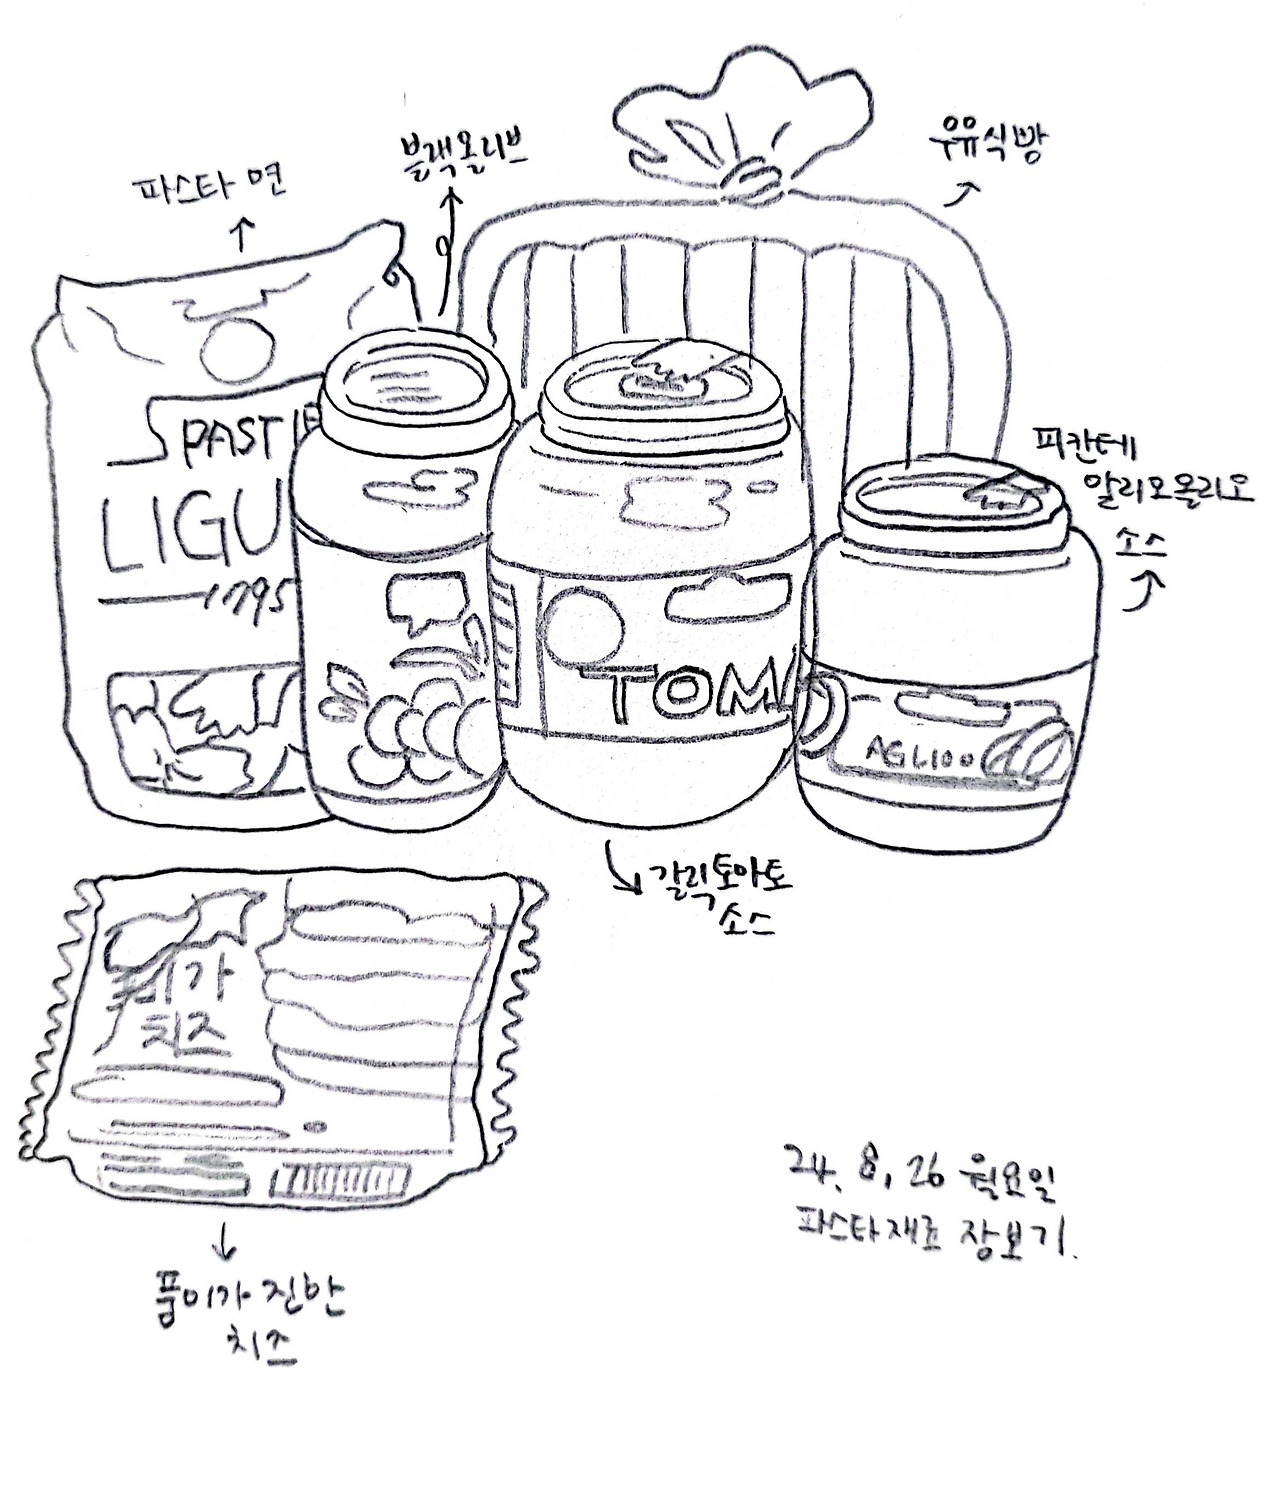 파스타 면
블랙올리브
우유식빵
SPASTIF
LIGU
1795
피칸테
알리오올리오
소스
TOMA
AGLIOO
갈릭토마토
소스
풍미가
치즈
24. 8. 26 월요일
파스타재료 장보기.
풍미가 진한
치즈